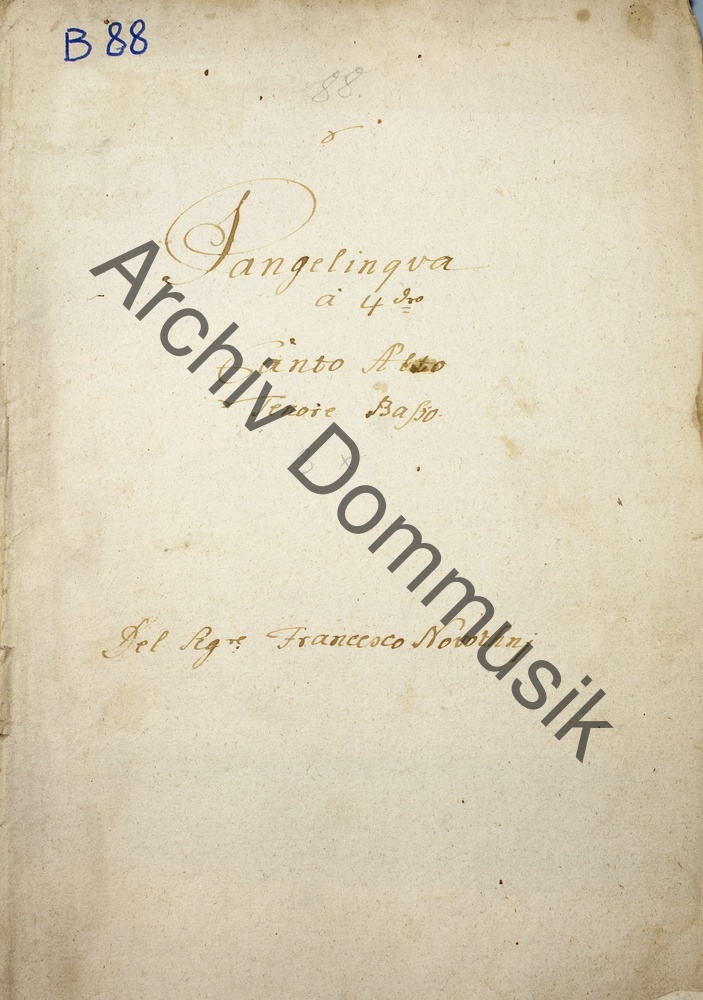 B 88
88.
Pangelinqva
à 4 dro
Canto Alto
Tenore Baßo.
Del Sigre Francesco
Archiv Dommusik